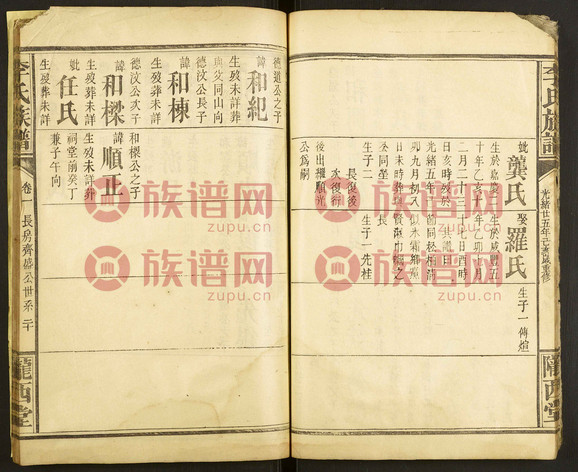 李氏族譜
光緒廿五年己亥歲重修
隴西堂
妣龔氏
生於嘉慶
二月二十
日亥時歿於
光緒五年
卯九月初八
日未時葬
生子二
長復後
次復衍
後出繼順光
公為嗣
娶羅氏
生於咸豐五
年乙卯十月
十七日酉時
生子一先桂
生子一傳煊
德道公之子
諱和紀
生歿未詳葬
與父同山向
德汶公長子
諱和棟
生歿葬未詳
德汶公次子
諱和樑
生歿葬未詳
妣任氏
生歿葬未詳
和樑公之子
諱順正
生歿未詳葬
祠堂前癸丁
兼子午向
李氏族譜
卷一
長房齊盛公世系
二十
隴西堂
族谱网
zupu.cn
族谱网
zupu.cn
族谱网
zupu.cn
族谱网
zupu.cn